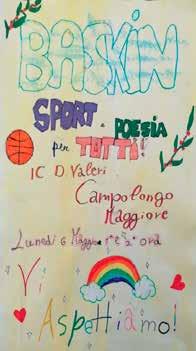 BASKIN
SPORT e POESIA
per TUTTI!
IC D Valeri
Campolongo
Maggiore
Lunedì 6 Maggio 1ª e 2ª ora
Vi
Aspettiamo!